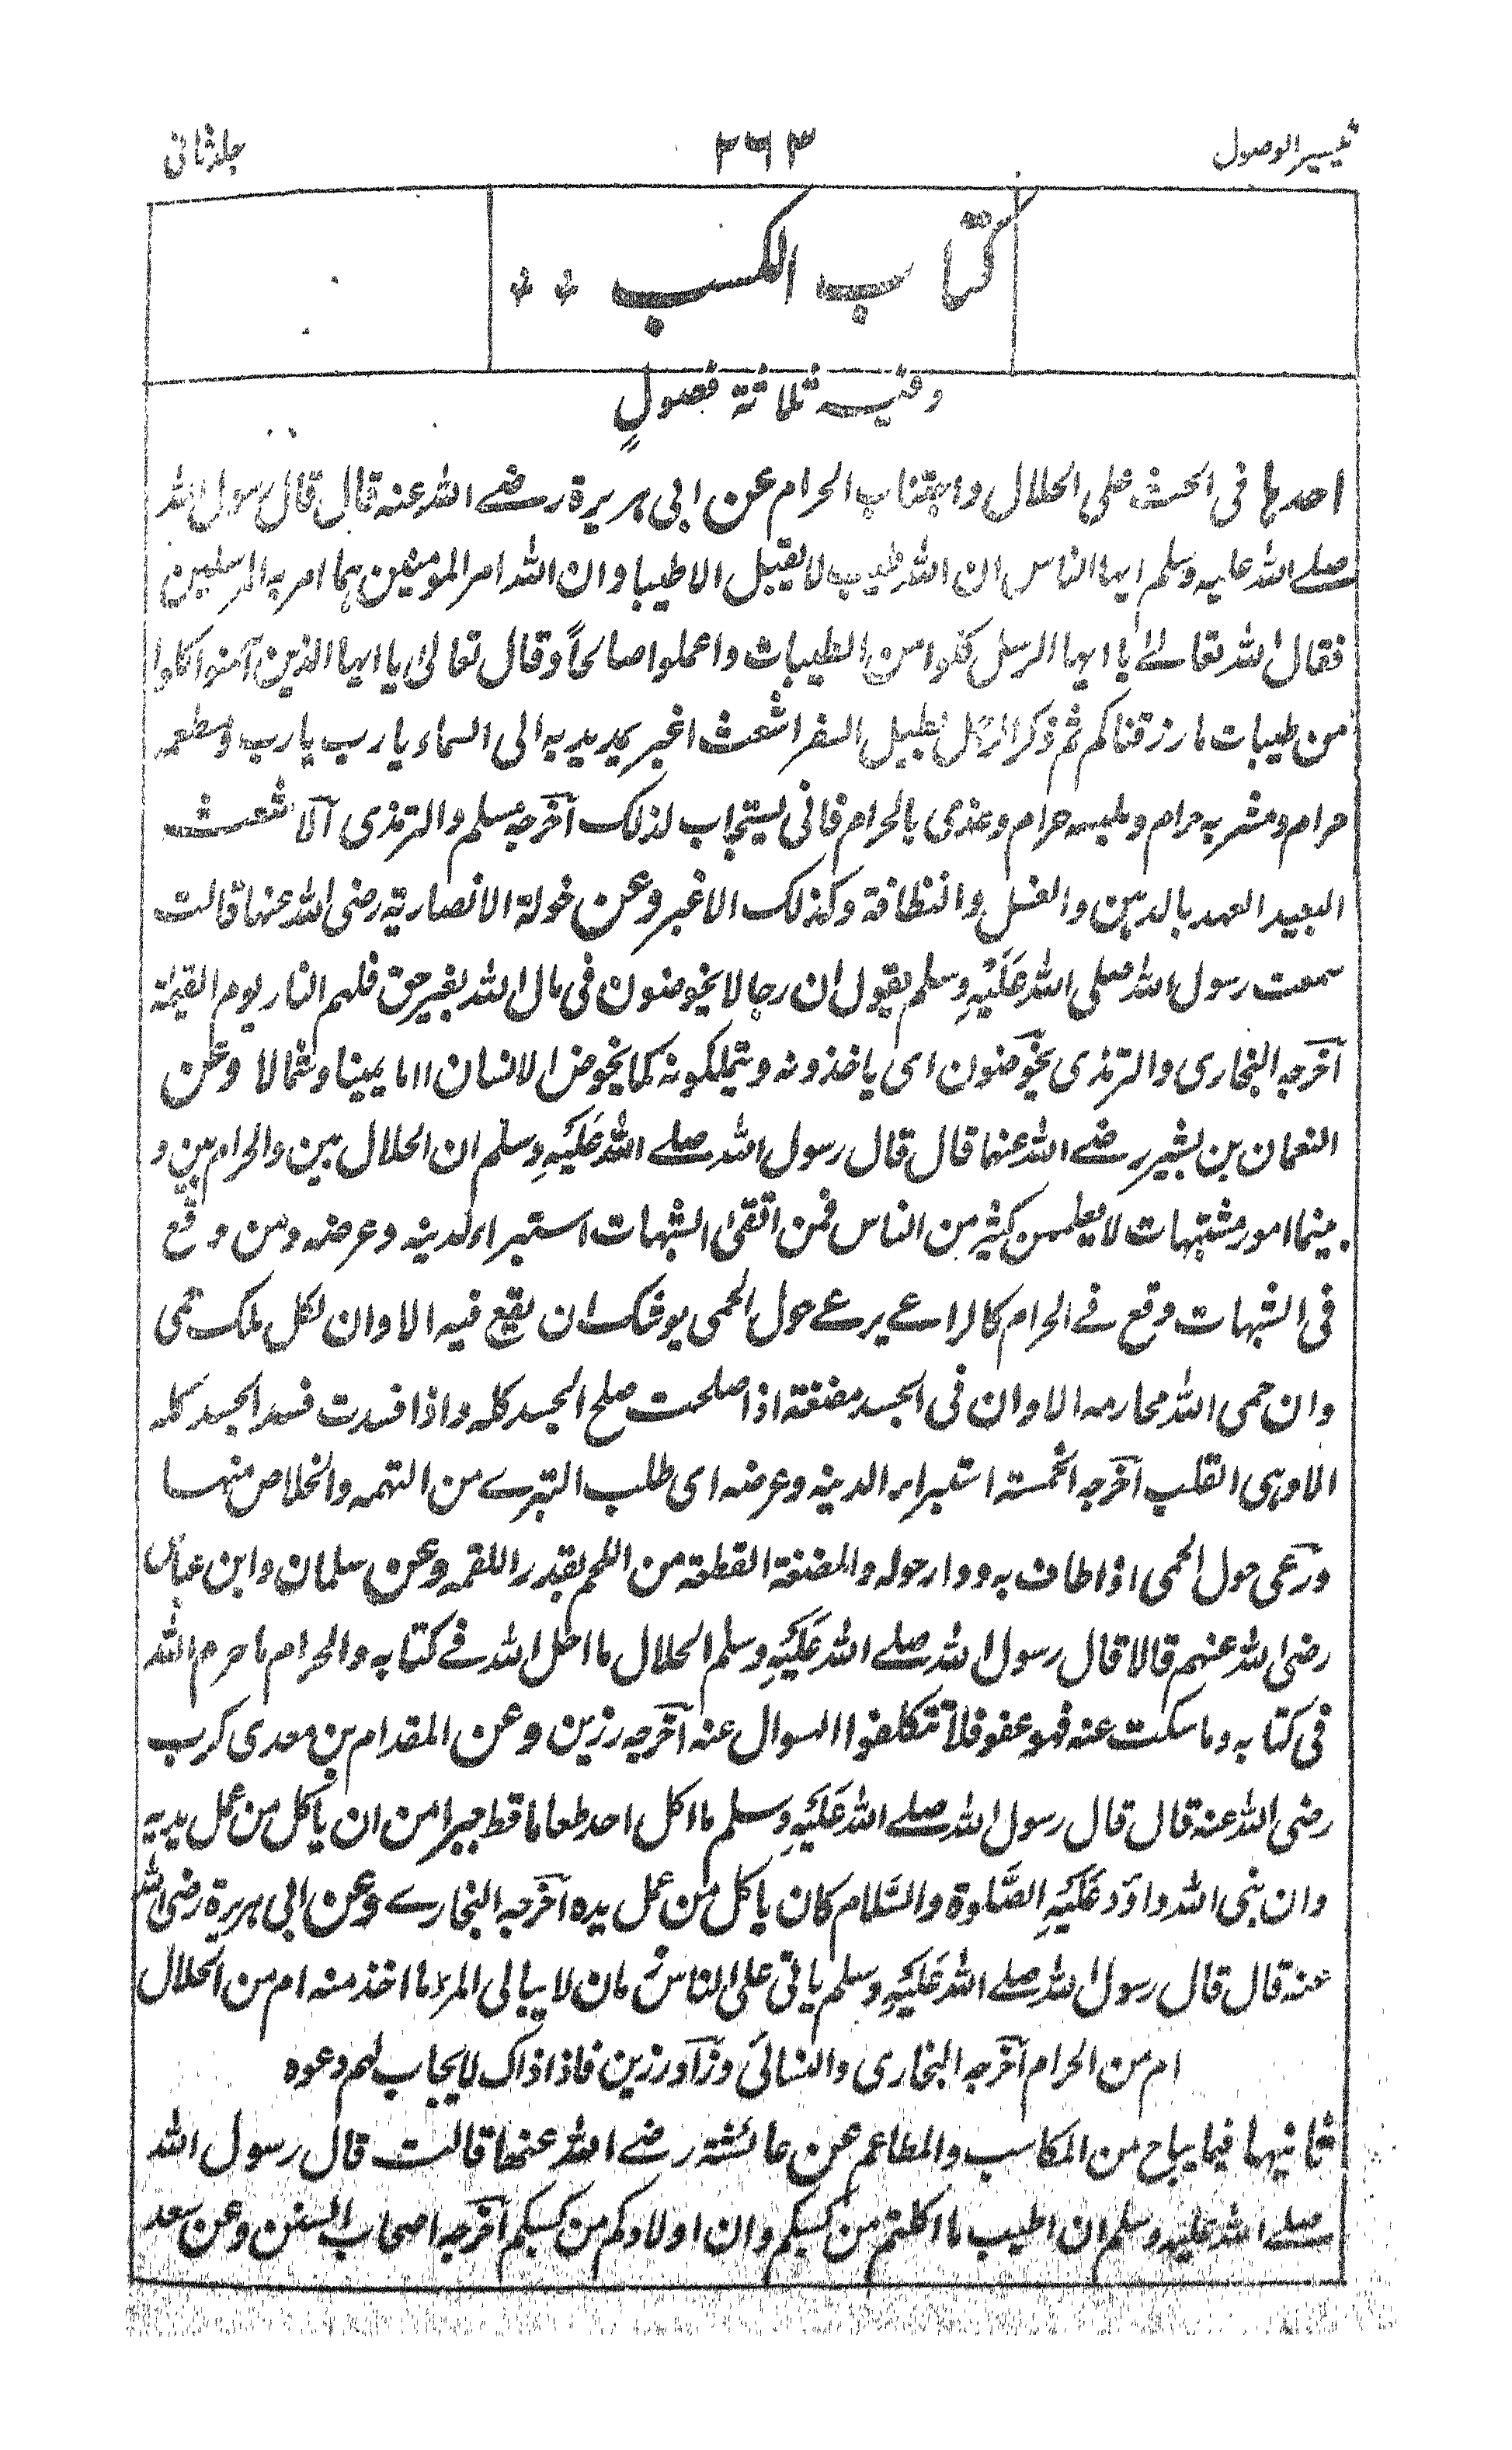 تيسير الوصول ٢٦٣ جلد ثانى
كتاب الكسب
وفيه ثلاثة فصول
احدها فى الحث على الحلال واجتناب الحرام عن ابى هريرة رضے الله عنه قال قال رسول الله
صلے الله عليه وسلم ايها الناس ان الله طيب لا يقبل الا طيبا وان الله امر المومنين بما امر به المرسلين
فقال الله تعالےٰ يا ايها الرسل كلوا من الطيبات واعملوا صالحاً وقال تعالىٰ يا ايها الذين آمنوا كلوا
من طيبات ما رزقناكم ثم ذكر الرجل يطيل السفر اشعث اغبر يمد يديه الى السماء يا رب يا رب ومطعمه
حرام ومشربه حرام وملبسه حرام وغذى بالحرام فانى يستجاب لذلك آخرجه مسلم والترمذى آلاشعث
البعيد العهد بالدهن والغسل والنظافة وكذلك الاغبر وعن خولة الانصارية رضى الله عنها قالت
سمعت رسول الله صلى الله عَلَيْهِ وسلم يقول ان رجالا يخوضون فى مال الله بغير حق فلهم النار يوم القيٰمة
آخرجه البخارى والترمذى يخوضون اى ياخذونه ويتملكونه كما يخوض الانسان الما يمينا وشمالا وعن
النعمان بن بشير رضے الله عنهما قال قال رسول الله صلے الله عَلَيْهِ وسلم ان الحلال بين والحرام بين و
بينهما امور مشتبهات لا يعلمهن كثير من الناس فمن اتقىٰ الشبهات استبرا لدينه وعرضه ومن وقع
فى الشبهات وقع فے الحرام كالراعے يرعے حول الحمى يوشك ان يقع فيه الا وان لكل ملك حمى
وان حمى الله محارمه الا وان فى الجسد مضغة اذا صلحت صلح الجسد كله واذا فسدت فسد الجسد كله
الا وهى القلب آخرجه الخمسة استبرا لدينه وعرضه اى طلب التبرے من التهمه والخلاص منها
ورعى حول الحمى اذا طاف به ودار حوله والمضغة القطعة من اللحم بقدر اللقمه وعن سلمان وابن عباس
رضى الله عنهم قالا قال رسول الله صلے الله عَلَيْهِ وسلم الحلال ما احل الله فے كتابه والحرام ما حرم الله
فى كتابه وما سكت عنه فهو عفو فلا تتكلفوا السوال عنه آخرجه رزين وعن المقدام بن معدى كرب
رضى الله عنه قال قال رسول الله صلے الله عَلَيْهِ وسلم ما اكل احد طعاما قط خيرا من ان ياكل من عمل يديه
وان نبى الله داؤد عَلَيْهِ الصَّلوة والسَّلام كان ياكل من عمل يده آخرجه البخارے وعن ابى هريرة رضى الله
عنه قال قال رسول الله صلے الله عَلَيْهِ وسلم ياتى على الناس زمان لا يبالى المرء ما اخذ منه ام من الحلال
ام من الحرام آخرجه البخارى والنسائى وزآد رزين فاذ اذاك لا يجاب لهم دعوه
ثانيها فيما يباح من المكاسب والمطاعم عن عائشة رضے الله عنها قالت قال رسول الله
صلے الله عليه وسلم ان اطيب ما اكلتم من كسبكم وان اولادكم من كسبكم آخرجه اصحاب السنن وعن سعد